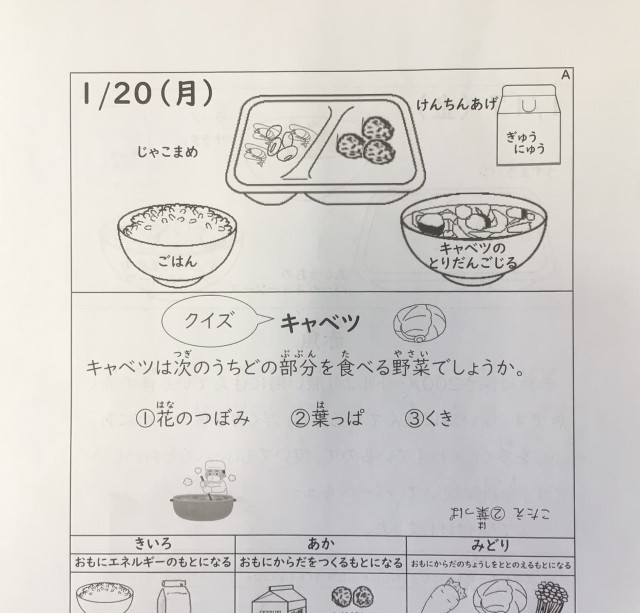 A
1/20(月)
けんちんあげ
ぎゅう
にゅう
じゃこまめ
ごはん
キャベツの
とりだんごじる
クイズ
キャベツ
キャベツは次のうちどの部分を食べる野菜でしょうか。
つぎ ぶぶん た やさい
①花のつぼみ ②葉っぱ ③くき
はな は
こたえ ②葉っぱ
は
きいろ あか みどり
おもにエネルギーのもとになる おもにからだをつくるもとになる おもにからだのちょうしをととのえるもとになる